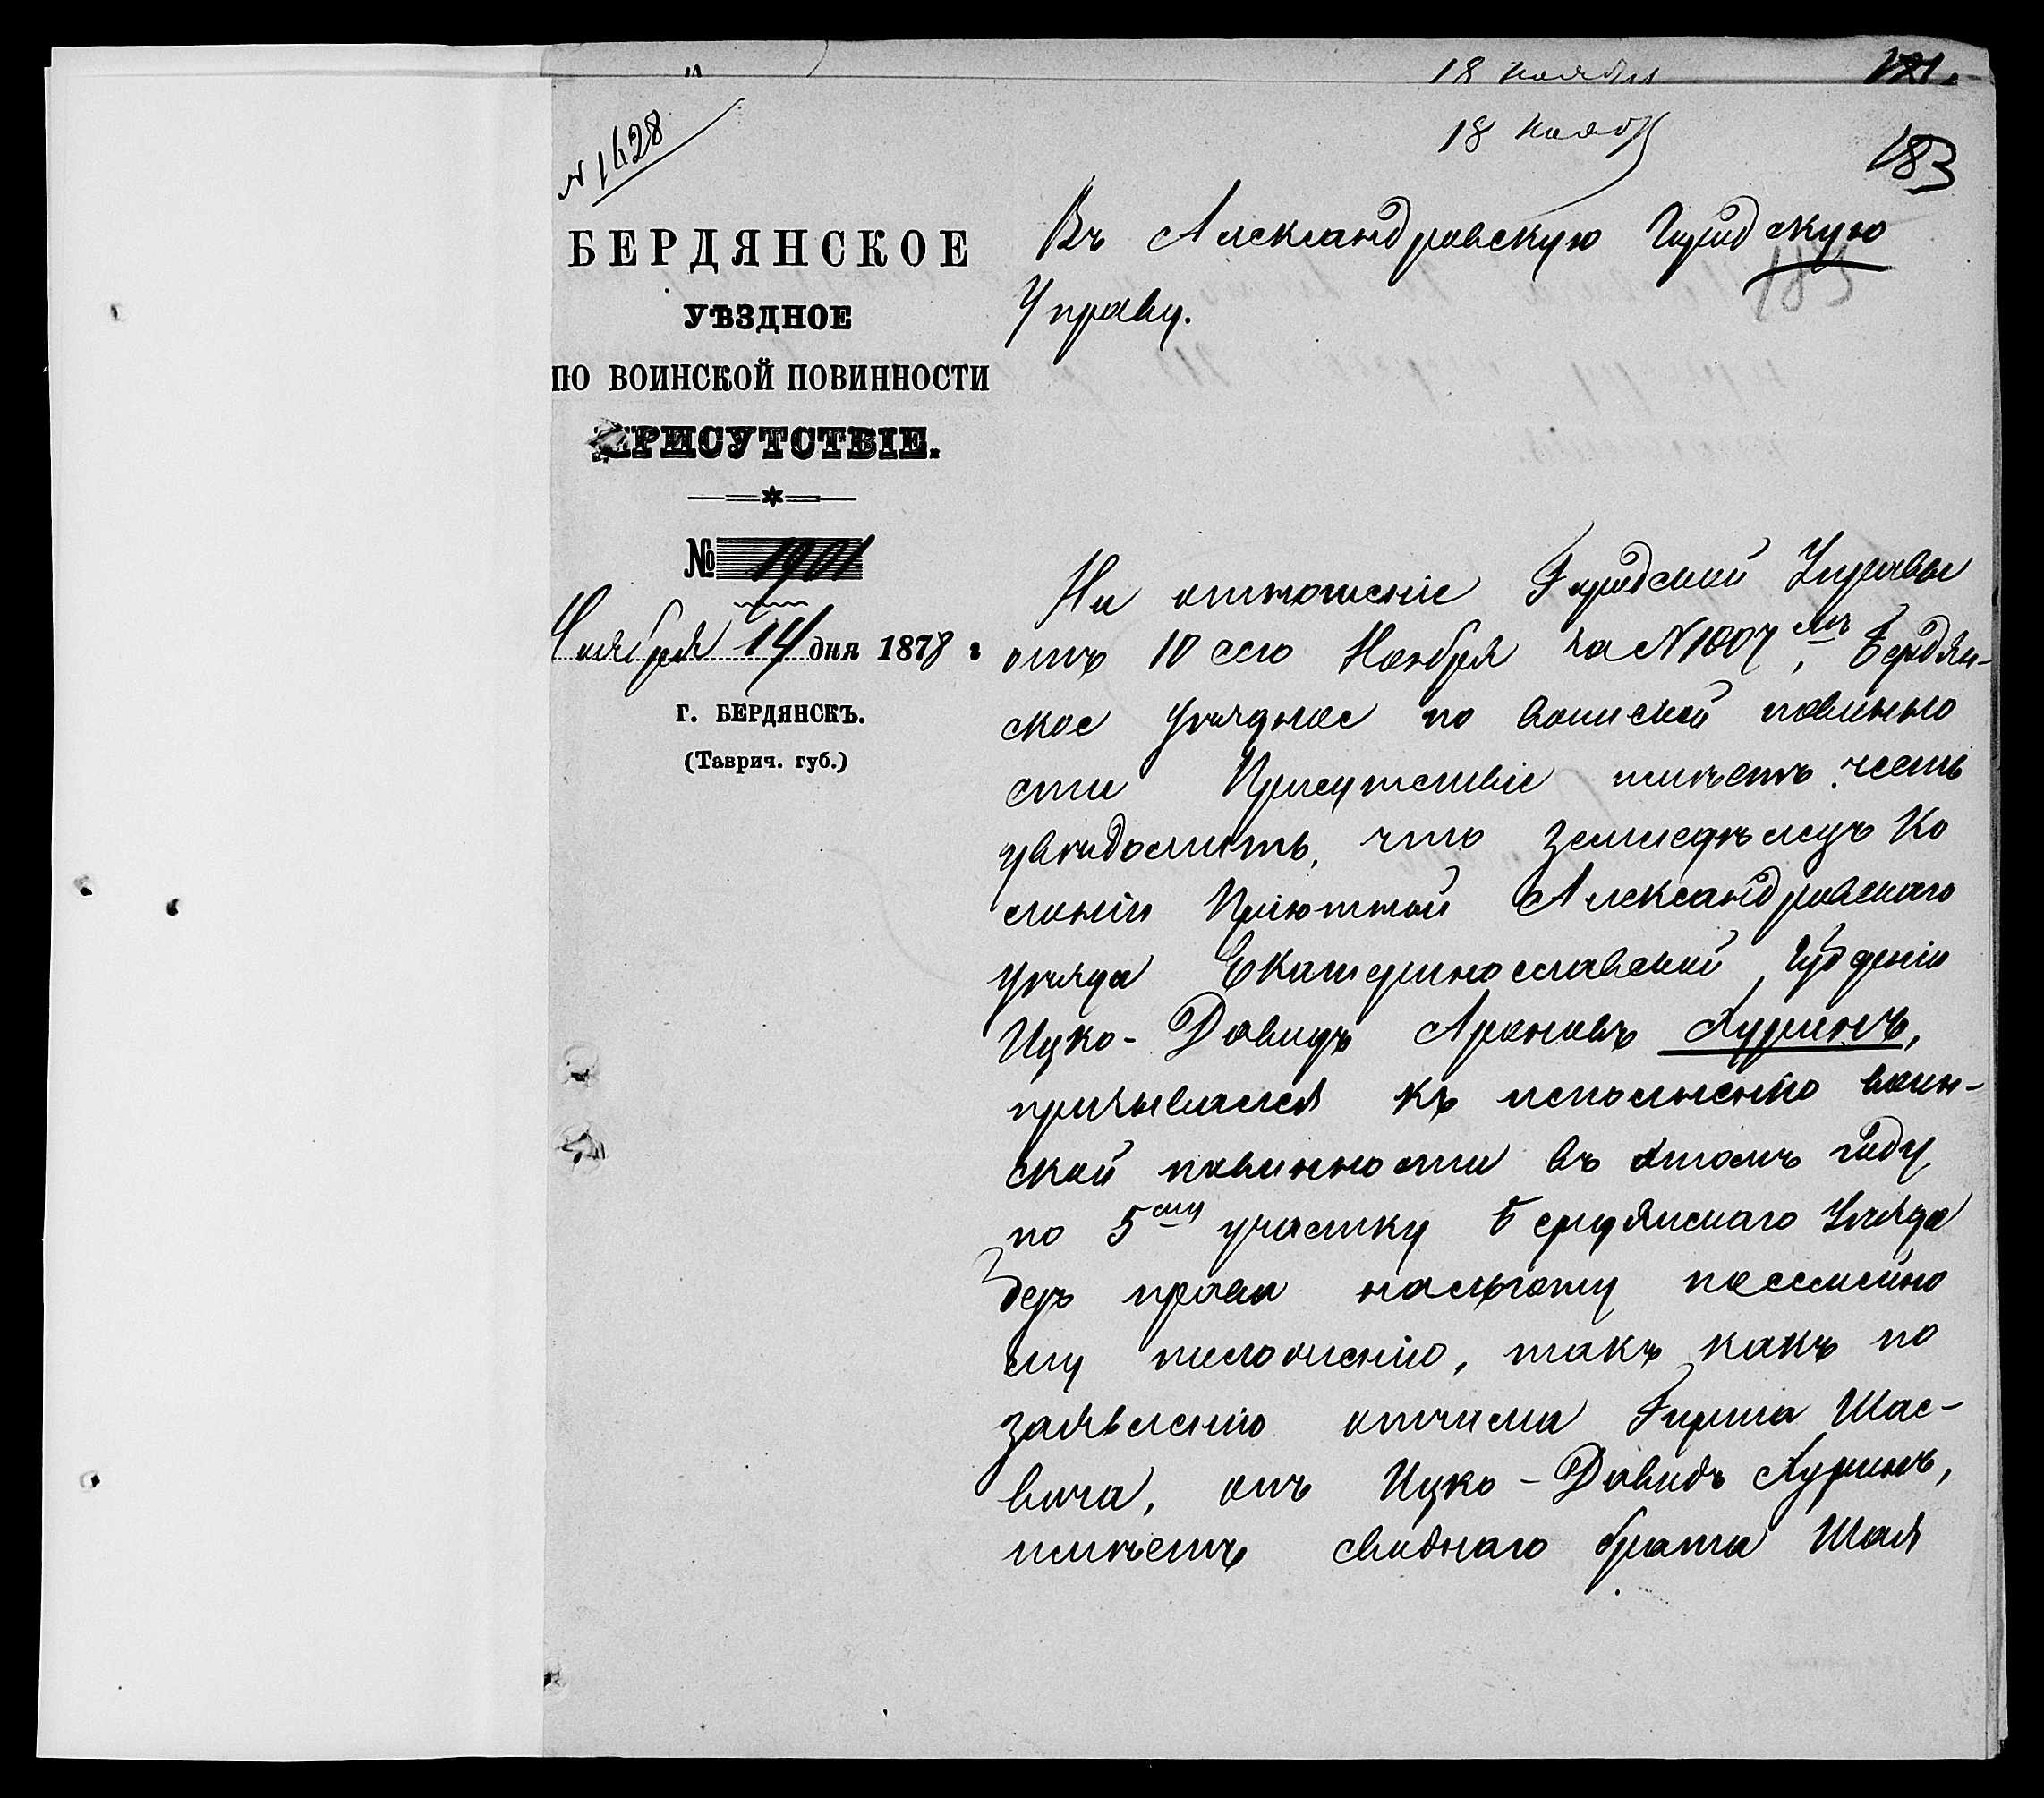 18 ноября
18 Нояб
№ 1628
183
БЕРДЯНСКОЕ
УѢЗДНОЕ
ПО ВОИНСКОЙ ПОВИННОСТИ
ПРИСУТСТВІЕ.
№ 1901
Ноября 14 дня 1878 г
Г. БЕРДЯНСКЪ.
(Таврич. губ.)
Въ Александровскую Городскую
Управу.
183
На отношеніе Городской Управы
отъ 10 сего Ноября за № 1007, Бердян-
ское Уѣздное по воинской повинно
сти Присутствіе имѣетъ честь
увѣдомить, что земледѣлецъ Ко
лоніи Пріютной Александровскаго
уѣзда Екатеринославской Губерніи
Ицко-Давидъ Ароновъ
призывался къ исполненію воин-
ской повинности въ этомъ году
по 5му участку Бердянскаго Уѣзда
безъ права на льготу по семейно
му положенію, такъ какъ по
заявленію отчима
онъ Ицко-Давидъ
имѣетъ своднаго брата Шая